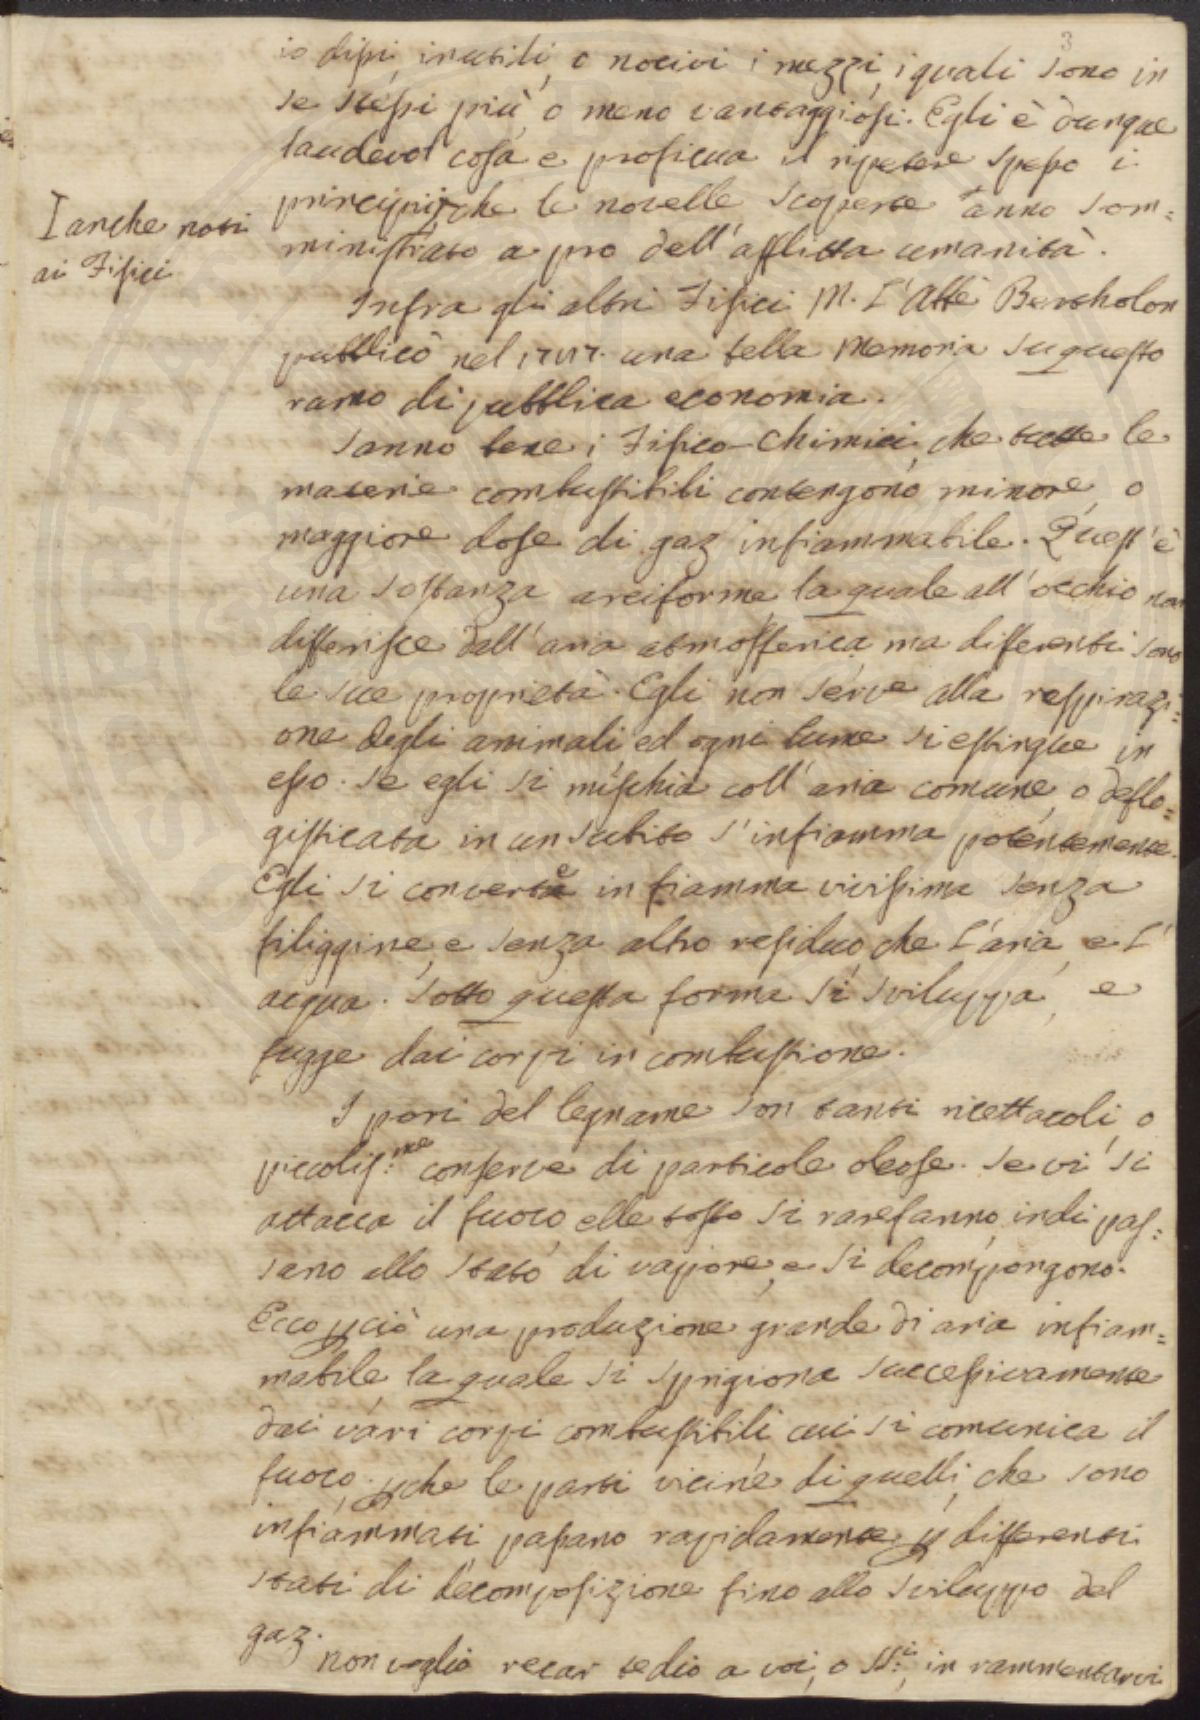 3
io dissi, inutili, o nocivi i mezzi, i quali sono in
se stessi più, o meno vantaggiosi. Egli è dunque
laudevol cosa e proficua il ripetere spesso i
principii, che le novelle scoperte anno som=
ministrato a pro dell'afflitta umanità.
I anche noti
ai Fisici
Infra gli altri Fisici M. L'Abbè Bertholon
pubblicò nel 1787. una bella Memoria su questo
ramo di pubblica economia.
Sanno bene i Fisico-Chimici, che tutte le
materie combustibili contengono minore, o
maggiore dose di gaz infiammabile. Quest'è
una sostanza areiforme, la quale all'occhio non
differisce dall'aria atmosferica, ma differenti sono
le sue proprietà. Egli non serve alla respirazi=
one degli animali, ed ogni lume si estingue in
esso. Se egli si mischia coll'aria comune, o deflo=
gisticata in un subito s'infiamma potentemente.
Egli si converte in fiamma vivissima senza
filiggine, e senza altro residuo, che l'aria, e l'
acqua. Sotto questa forma si sviluppa, e
fugge dai corpi in combustione.
I pori del legname son tanti ricettacoli, o
piccolis.me conserve di particole oleose. Se vi si
attacca il fuoco, elle tosto si rarefanno, indi pas=
sano allo stato di vapore, e si decompongono.
Ecco pciò una produzione grande di aria infiam=
mabile, la quale si sprigiona successivamente
dai vari corpi combustibili, cui si comunica il
fuoco. pche le parti vicine di quelli, che sono
infiammati passano rapidamente p differenti
stati di decomposizione fino allo sviluppo del
gaz.
Non voglio recar tedio a voi, o SS.i, in rammentarvi